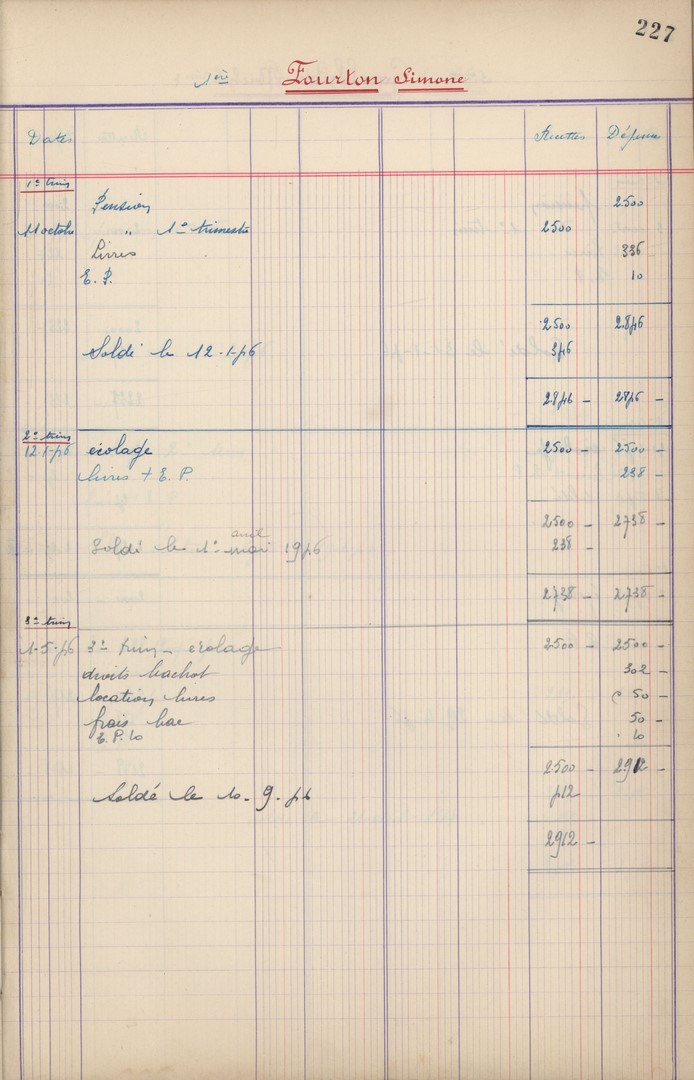 227
1ère Fourton Simone
Dates Recettes Dépenses
1er trim
Pension 2.500
11 octobre " 1er trimestre 2500
Livres 336
E. P. 10
2500 2.846
Soldé le 12-1-46 346
2846 - 2846 -
2e trim
12.1-46 écolage 2500 - 2500 -
livres + E. P. 238 -
2500 - 2738 -
avril
Soldé le 1er mai 1946 238 -
2738 - 2738 -
3e trim
1-5-46 3e trim - écolage 2500 - 2500 -
droits bachot 302 -
location livres 50 -
frais bac 50 -
E. P. 10 10
2500 - 2912 -
Soldé le 10-9-46 412
2912 -